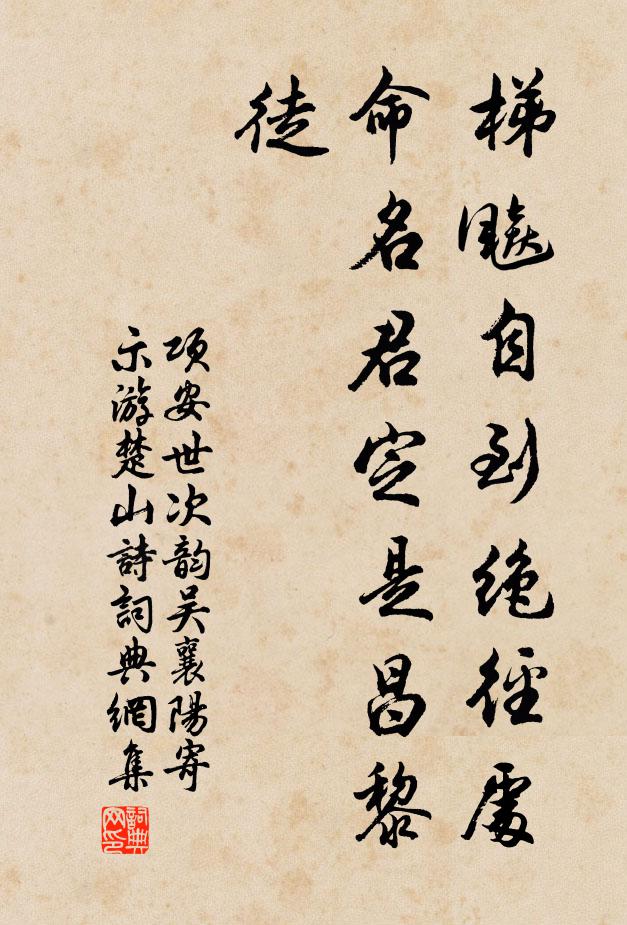 梯飈自到絶徑處
命名君定是昌黎
徒
項安世次韵吴襄陽寄
示游楚山詩詞典網集
詞典网印